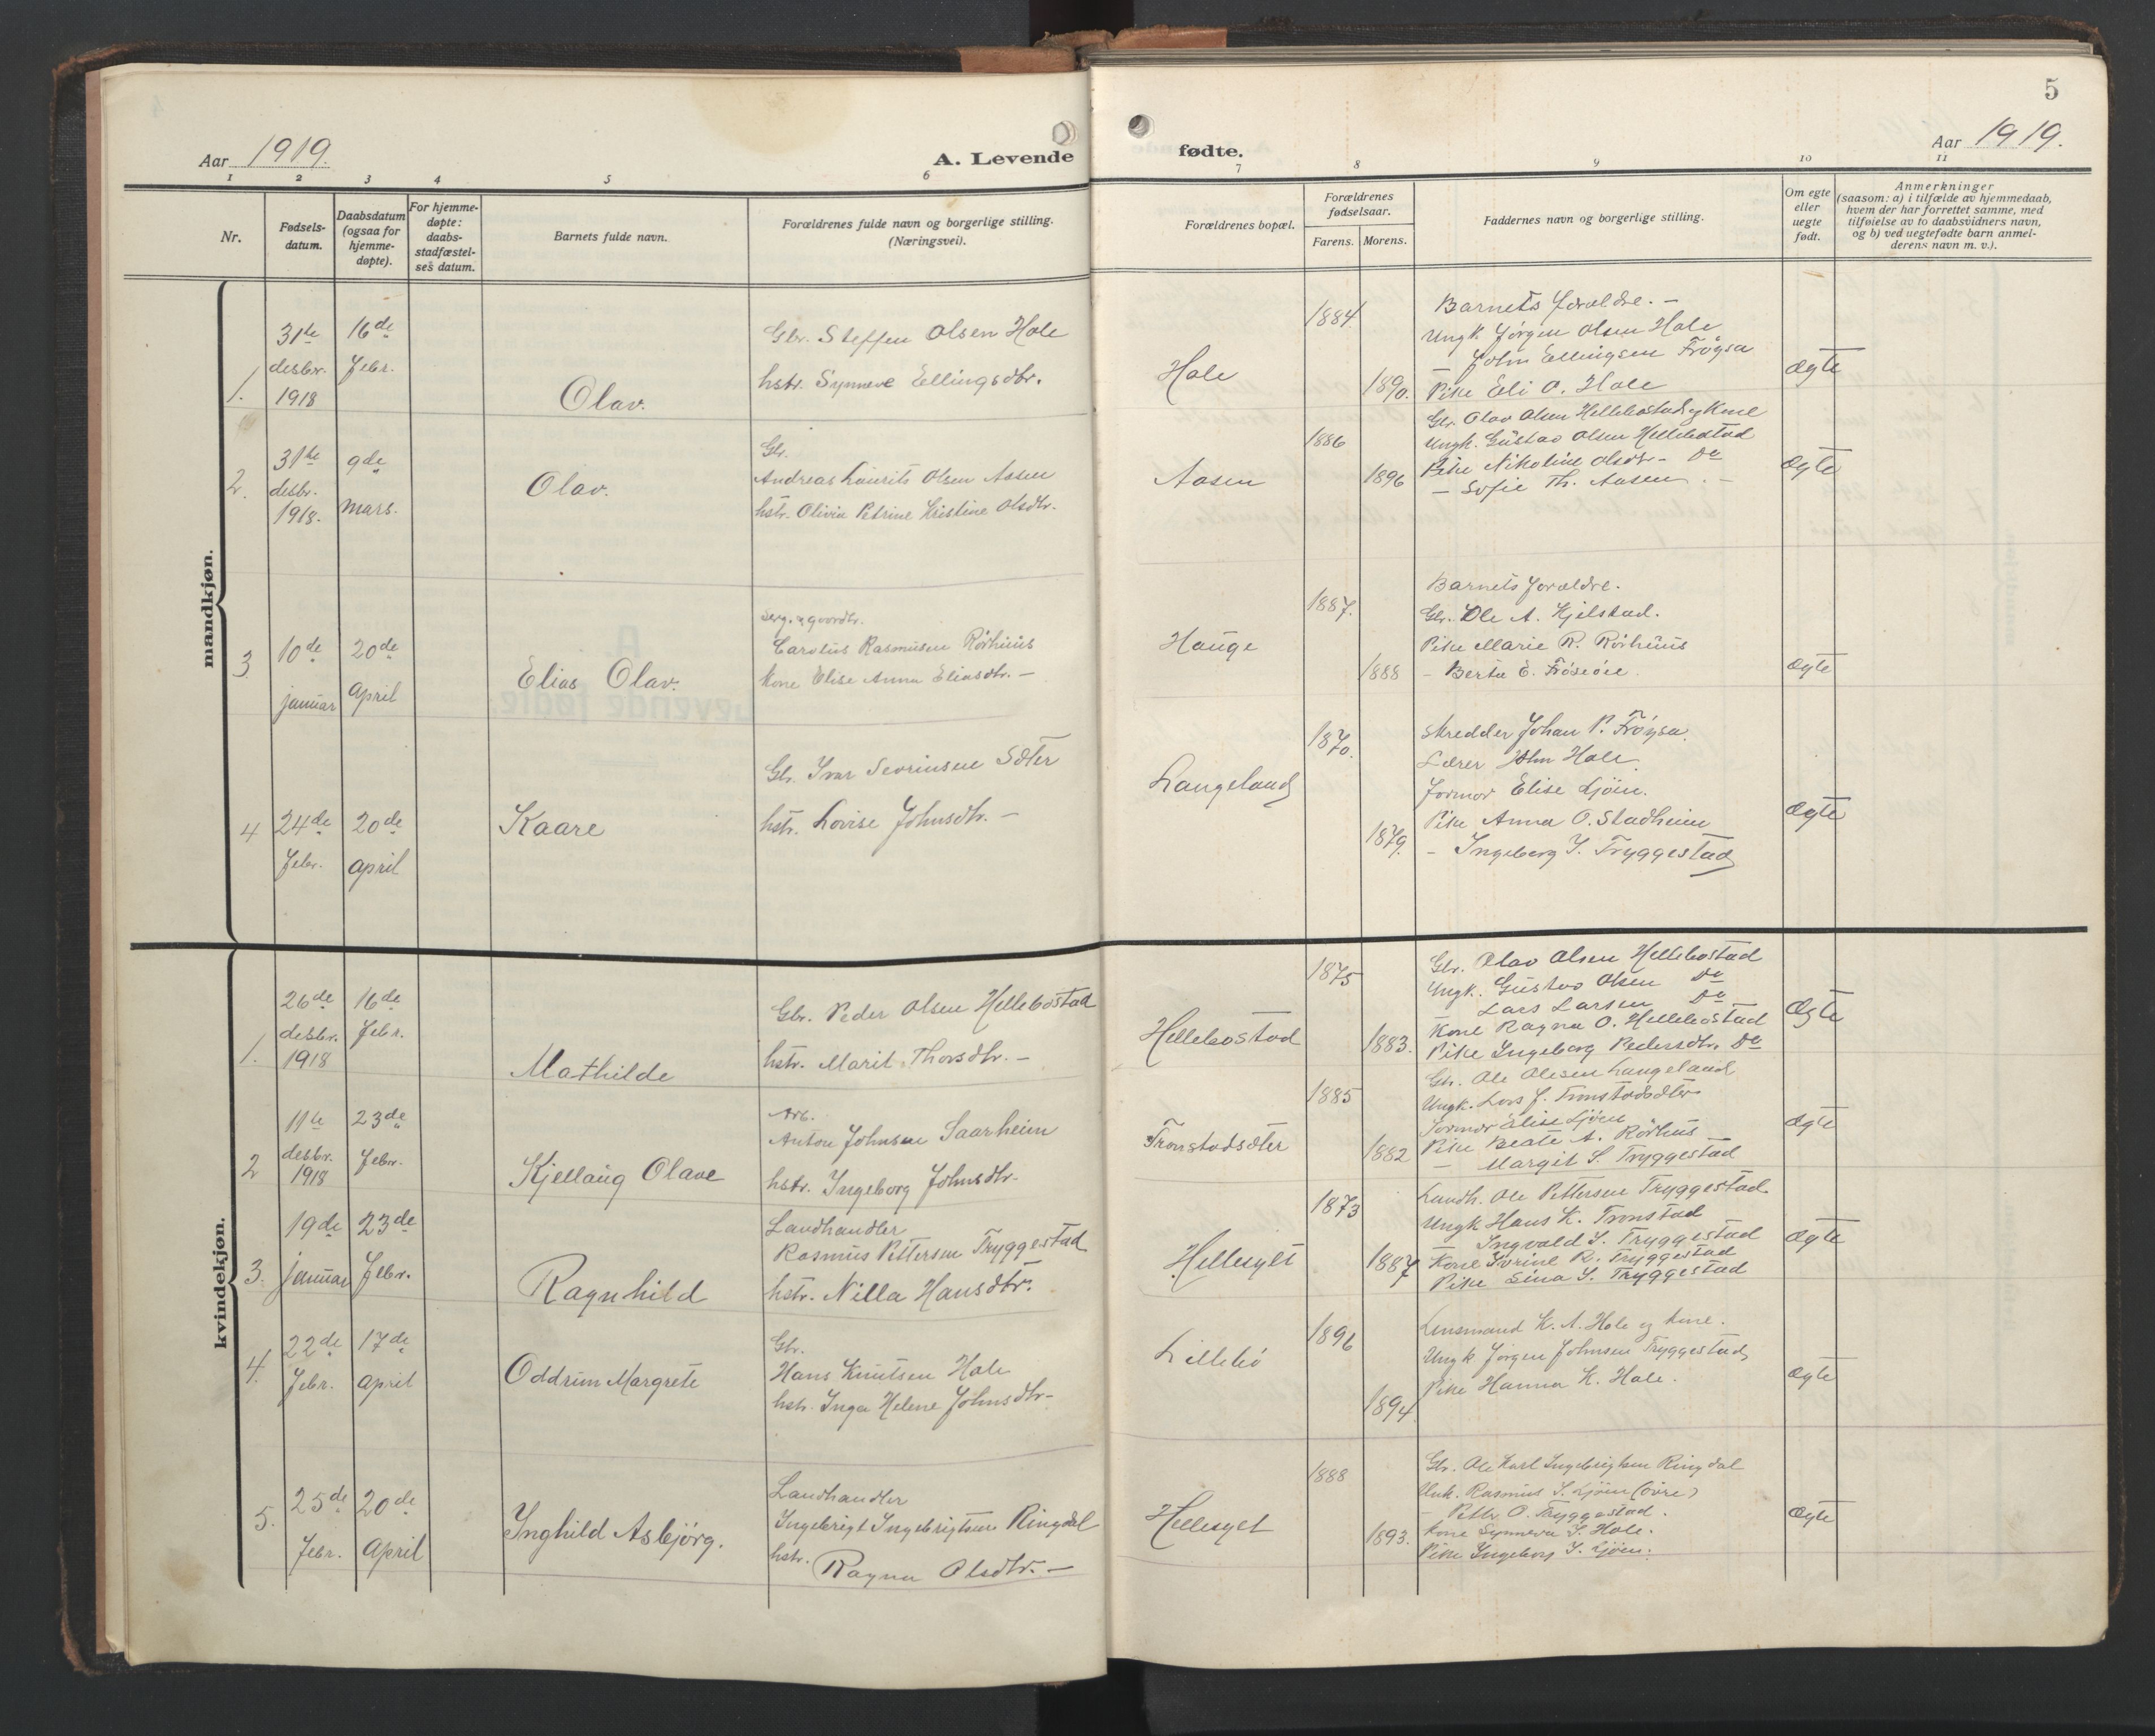 5
Aar 1919.
A. Levende fødte.
Aar 1919.
1 2 3 4 5 6 7 8 9 10 11
Nr.
Fødsels-
datum.
Daabsdatum
(ogsaa for
hjemme-
døpte).
For hjemme-
døpte:
daabs-
stadfæstel-
ses datum.
Barnets fulde navn.
Forældrenes fulde navn og borgerlige stilling.
(Næringsvei).
Forældrenes bopæl.
Forældrenes
fødselsaar.
Farens. Morens.
Faddernes navn og borgerlige stilling.
Om egte
eller
uegte
født.
Anmerkninger
(saasom: a) i tilfælde av hjemmedaab,
hvem der har forrettet samme, med
tilføielse av to daabsvidners navn,
og b) ved uegtefødte barn anmel-
derens navn m. v.).
mandkjøn.
1.
31te
desbr.
1918
16de
Febr.
Olav.
Gbr. Steffen Olsen Hole
hstr. Synneve Ellingsdtr.
Hole
1884
1890.
Barnets forældre. -
Ungk Jørgen Olsen Hole
- John Ellingsen Frøysa
Pike Eli O. Hole
ægte
2.
31te
desbr.
1918.
9de
mars.
Olav.
Gbr.
Andreas Laurits Olsen Aasen
hstr. Olivia Petrine Kristine Olsdtr.
Aasen
1886
1896
Gbr. Olav Olsen Hellebostad og Kone
Ungk. Gustav Olsen Hellebostad
Pike Nikoline Olsdtr. Do
- Sofie Th. Aasen. -
ægte
3
10de
januar
20de
April
Elias Olav.
Serg. &amp; gaardbr.
Carolus Rasmusen Rørhuus
Kone Elise Anna Eliasdtr. -
Hauge
1887.
1888
Barnets forældre.
Gbr. Ole A. Kjelstad.
Pike Marie R. Rørhuus
- Berta E. Frøseøie.
ægte
4
24de
Febr.
20de
april
Kaare
Gbr. Ivar Sevrinsen Sæter
hstr. Lovise Johnsdtr. -
Langeland
1870.
1879.
Skredder Johan P. Frøysa.
Lærer John Hole.
Jormor Elise Ljøen.
Pike Anna O. Stadheim
- Ingeborg I. Tryggestad
ægte
kvindekjøn.
1.
26de
desbr.
1918
16de
Febr.
Mathilde
Gbr. Peder Olsen Hellebostad
hstr. Marit Thorsdtr. -
Hellebostad
1875
1883.
Gbr. Olav Olsen Hellebostad
Ungk. Gustav Olsen Do
Lars Larsen Do
Kone Ragna O. Hellebostad
Pike Ingeborg Pedersdtr. Do
Ægte
2
11te
desbr.
1918
23de
Febr.
Kjellaug Olave
Arb.
Anton Johnsen Saarheim
hstr. Ingeborg Johnsdtr.
Tronstadsæter
1885
1882
Gbr. Ole Olesen Langeland
Ungk. Lars J. Tronstadsæter
Jormor Elise Ljøen
Pike Beate A. Rørhus
- Margit S. Tryggestad
ægte
3.
19de
januar
23de
Febr.
Ragnhild
Landhandler
Rasmus Pettersen Tryggestad
hstr. Nilla Hansdtr.
Hellesylt
1873
1887
Landh. Ole Pettersen Tryggestad
Ungk Hans K. Tronstad
Ingvald S. Tryggestad
Kone Ivrine R. Tryggestad
Pike Lina S. Tryggestad
ægte
4.
22de
Febr.
17de
april
Oddrun Margrete
Gbr.
Hans Knutsen Hole
hstr. Inga Helene Johnsdtr-
Lillebø
1896
1894
Lensmand K. A. Hole og kone.
Ungk Jørgen Johnsen Tryggestad
Pike Hanna K. Hole.
ægte
5.
25de
Febr.
20de
April
Inghild Asbjørg.
Landhandler
Ingebrigt Ingebrigtsen Ringdal
hstr.
Ragna Olsdtr. -
Hellesylt
1888
1893.
Gbr. Ole Karl Ingebrigtsen Ringdal
Unk. Rasmus S. Ljøen (øvre)
- Petter O. Tryggestad.
Kone Synneva S. Hole.
Pike Ingeborg I. Ljøen.
ægte